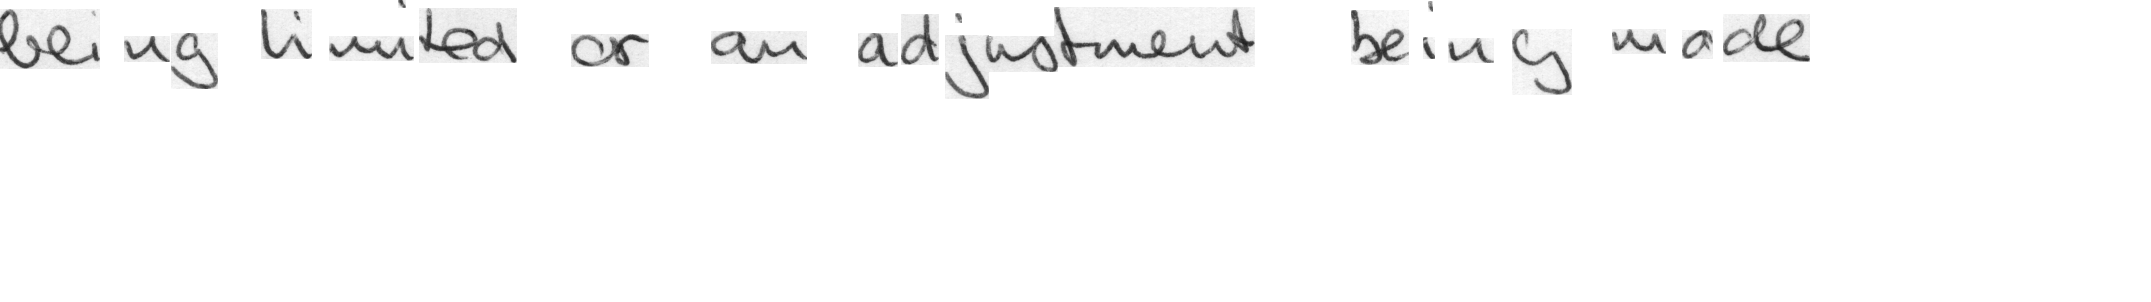 being limited or an adjustment being made